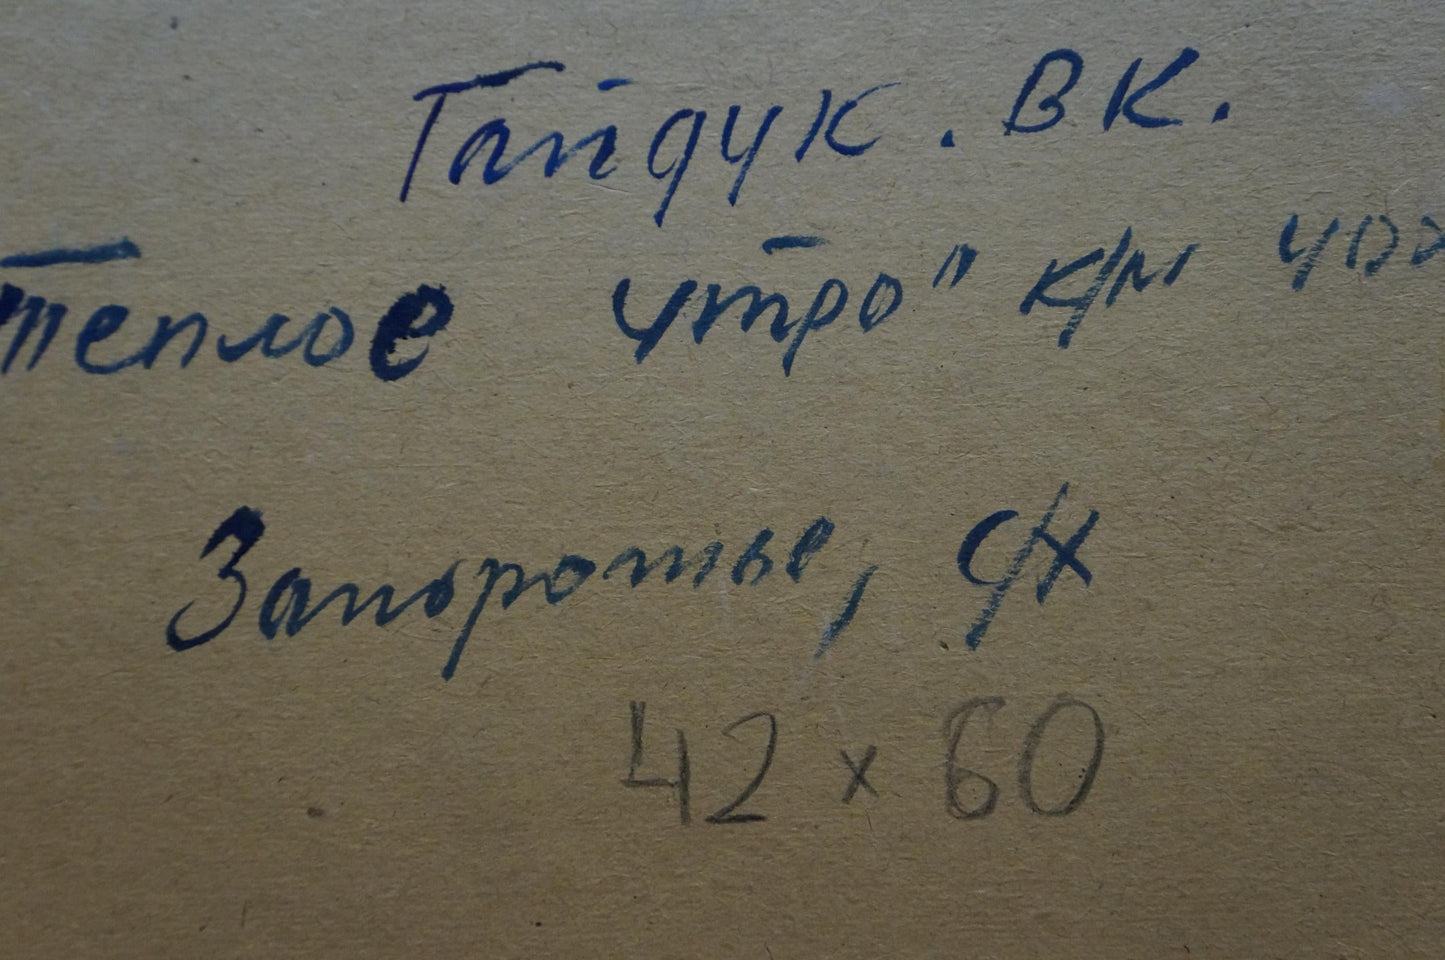 Гайдук. В К.
Теплое утро" к/м
Запоротье, с/х
42 x 60